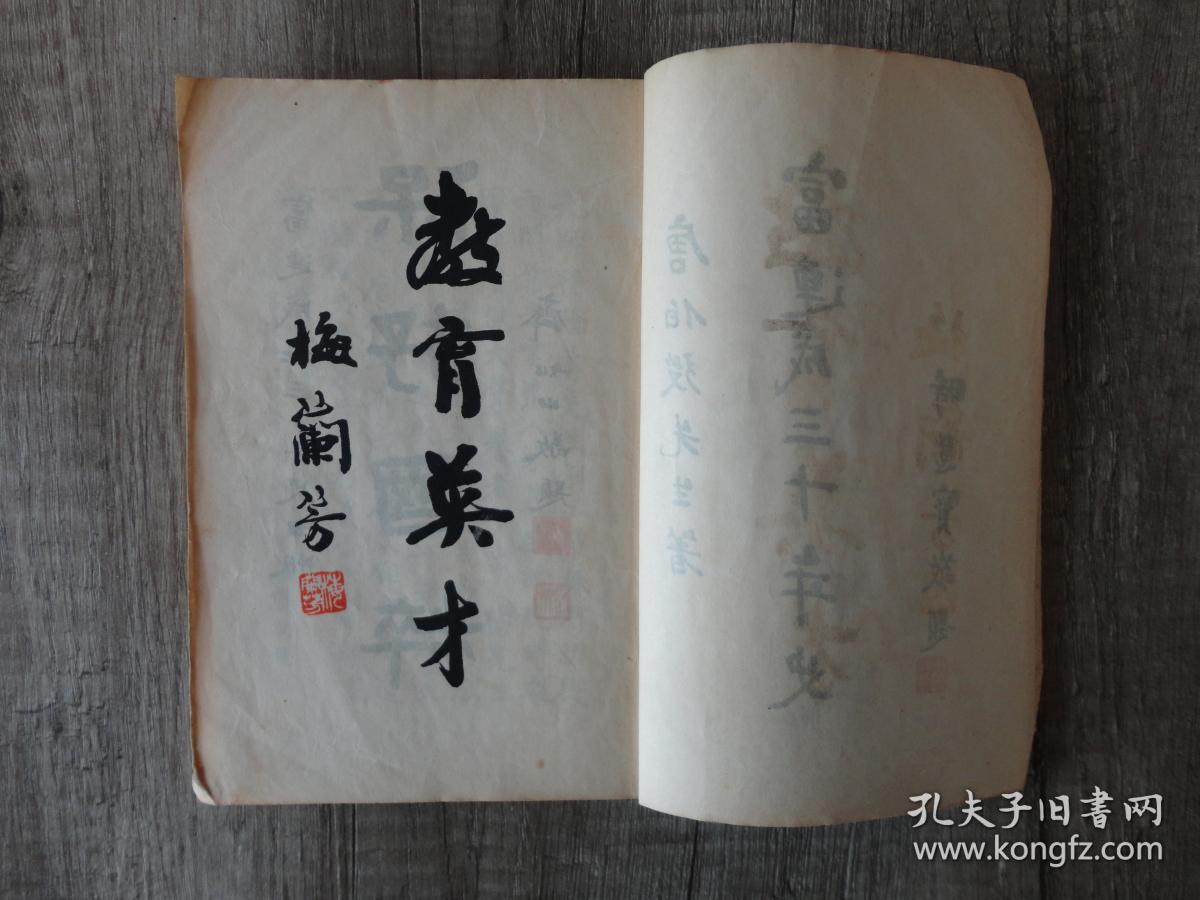 教育英才
梅蘭芳
梅蘭芳
富連成三十年史
唐伯弢先生著
齊如山敬題
孔夫子旧書网
www.kongfz.com